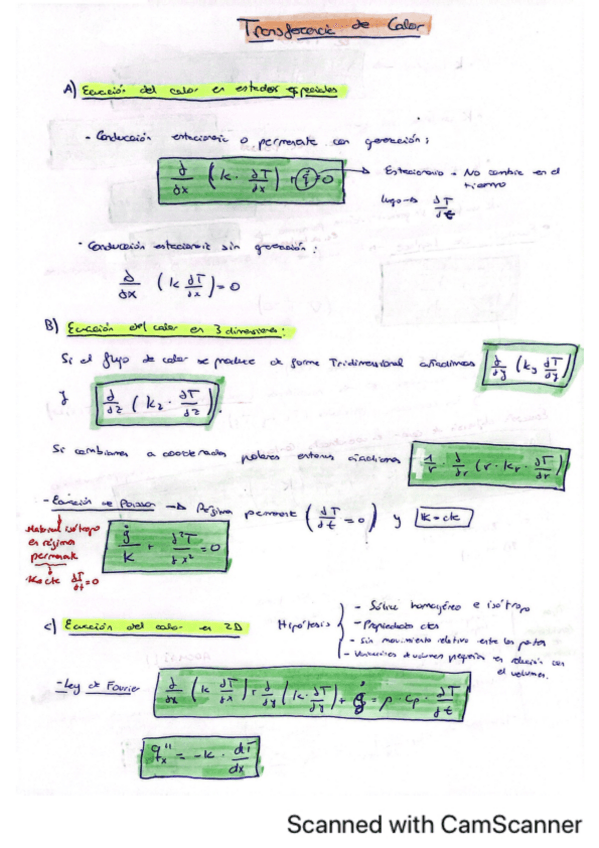 Transferencia de Calor
A) Ecuación del calor en estados especiales
- Conducción estacionaria o permanente con generación:
∂/∂x (k · ∂T/∂x) + q̇ = 0 → Estacionario → No cambia en el tiempo
luego → ∂T/∂t
- Conducción estacionaria sin generación:
∂/∂x (k ∂T/∂x) = 0
B) Ecuación del calor en 3 dimensiones:
Si el flujo de calor se produce de forma Tridimensional añadimos ∂/∂y (ky ∂T/∂y)
y ∂/∂z (kz · ∂T/∂z).
Si cambiamos a coordenadas polares entonces añadimos 1/r · ∂/∂r (r · kr · ∂T/∂r)
- Ecuación de Poisson → Régimen permanente (∂T/∂t = 0) y K = cte
Material isótropo
en régimen
permanente
K = cte ∂T/∂t = 0
q̇/K + ∂²T/∂x² = 0
C) Ecuación del calor en 2D
Hipótesis
- Sólido homogéneo e isótropo
- Propiedades ctes
- Sin movimiento relativo entre las partes
- Variaciones de volumen pequeñas en relación con
el volumen.
- Ley de Fourier
∂/∂x (k ∂T/∂x) + ∂/∂y (k · ∂T/∂y) + q̇ = ρ · cp · ∂T/∂t
qx'' = -k · dT/dx
Scanned with CamScanner